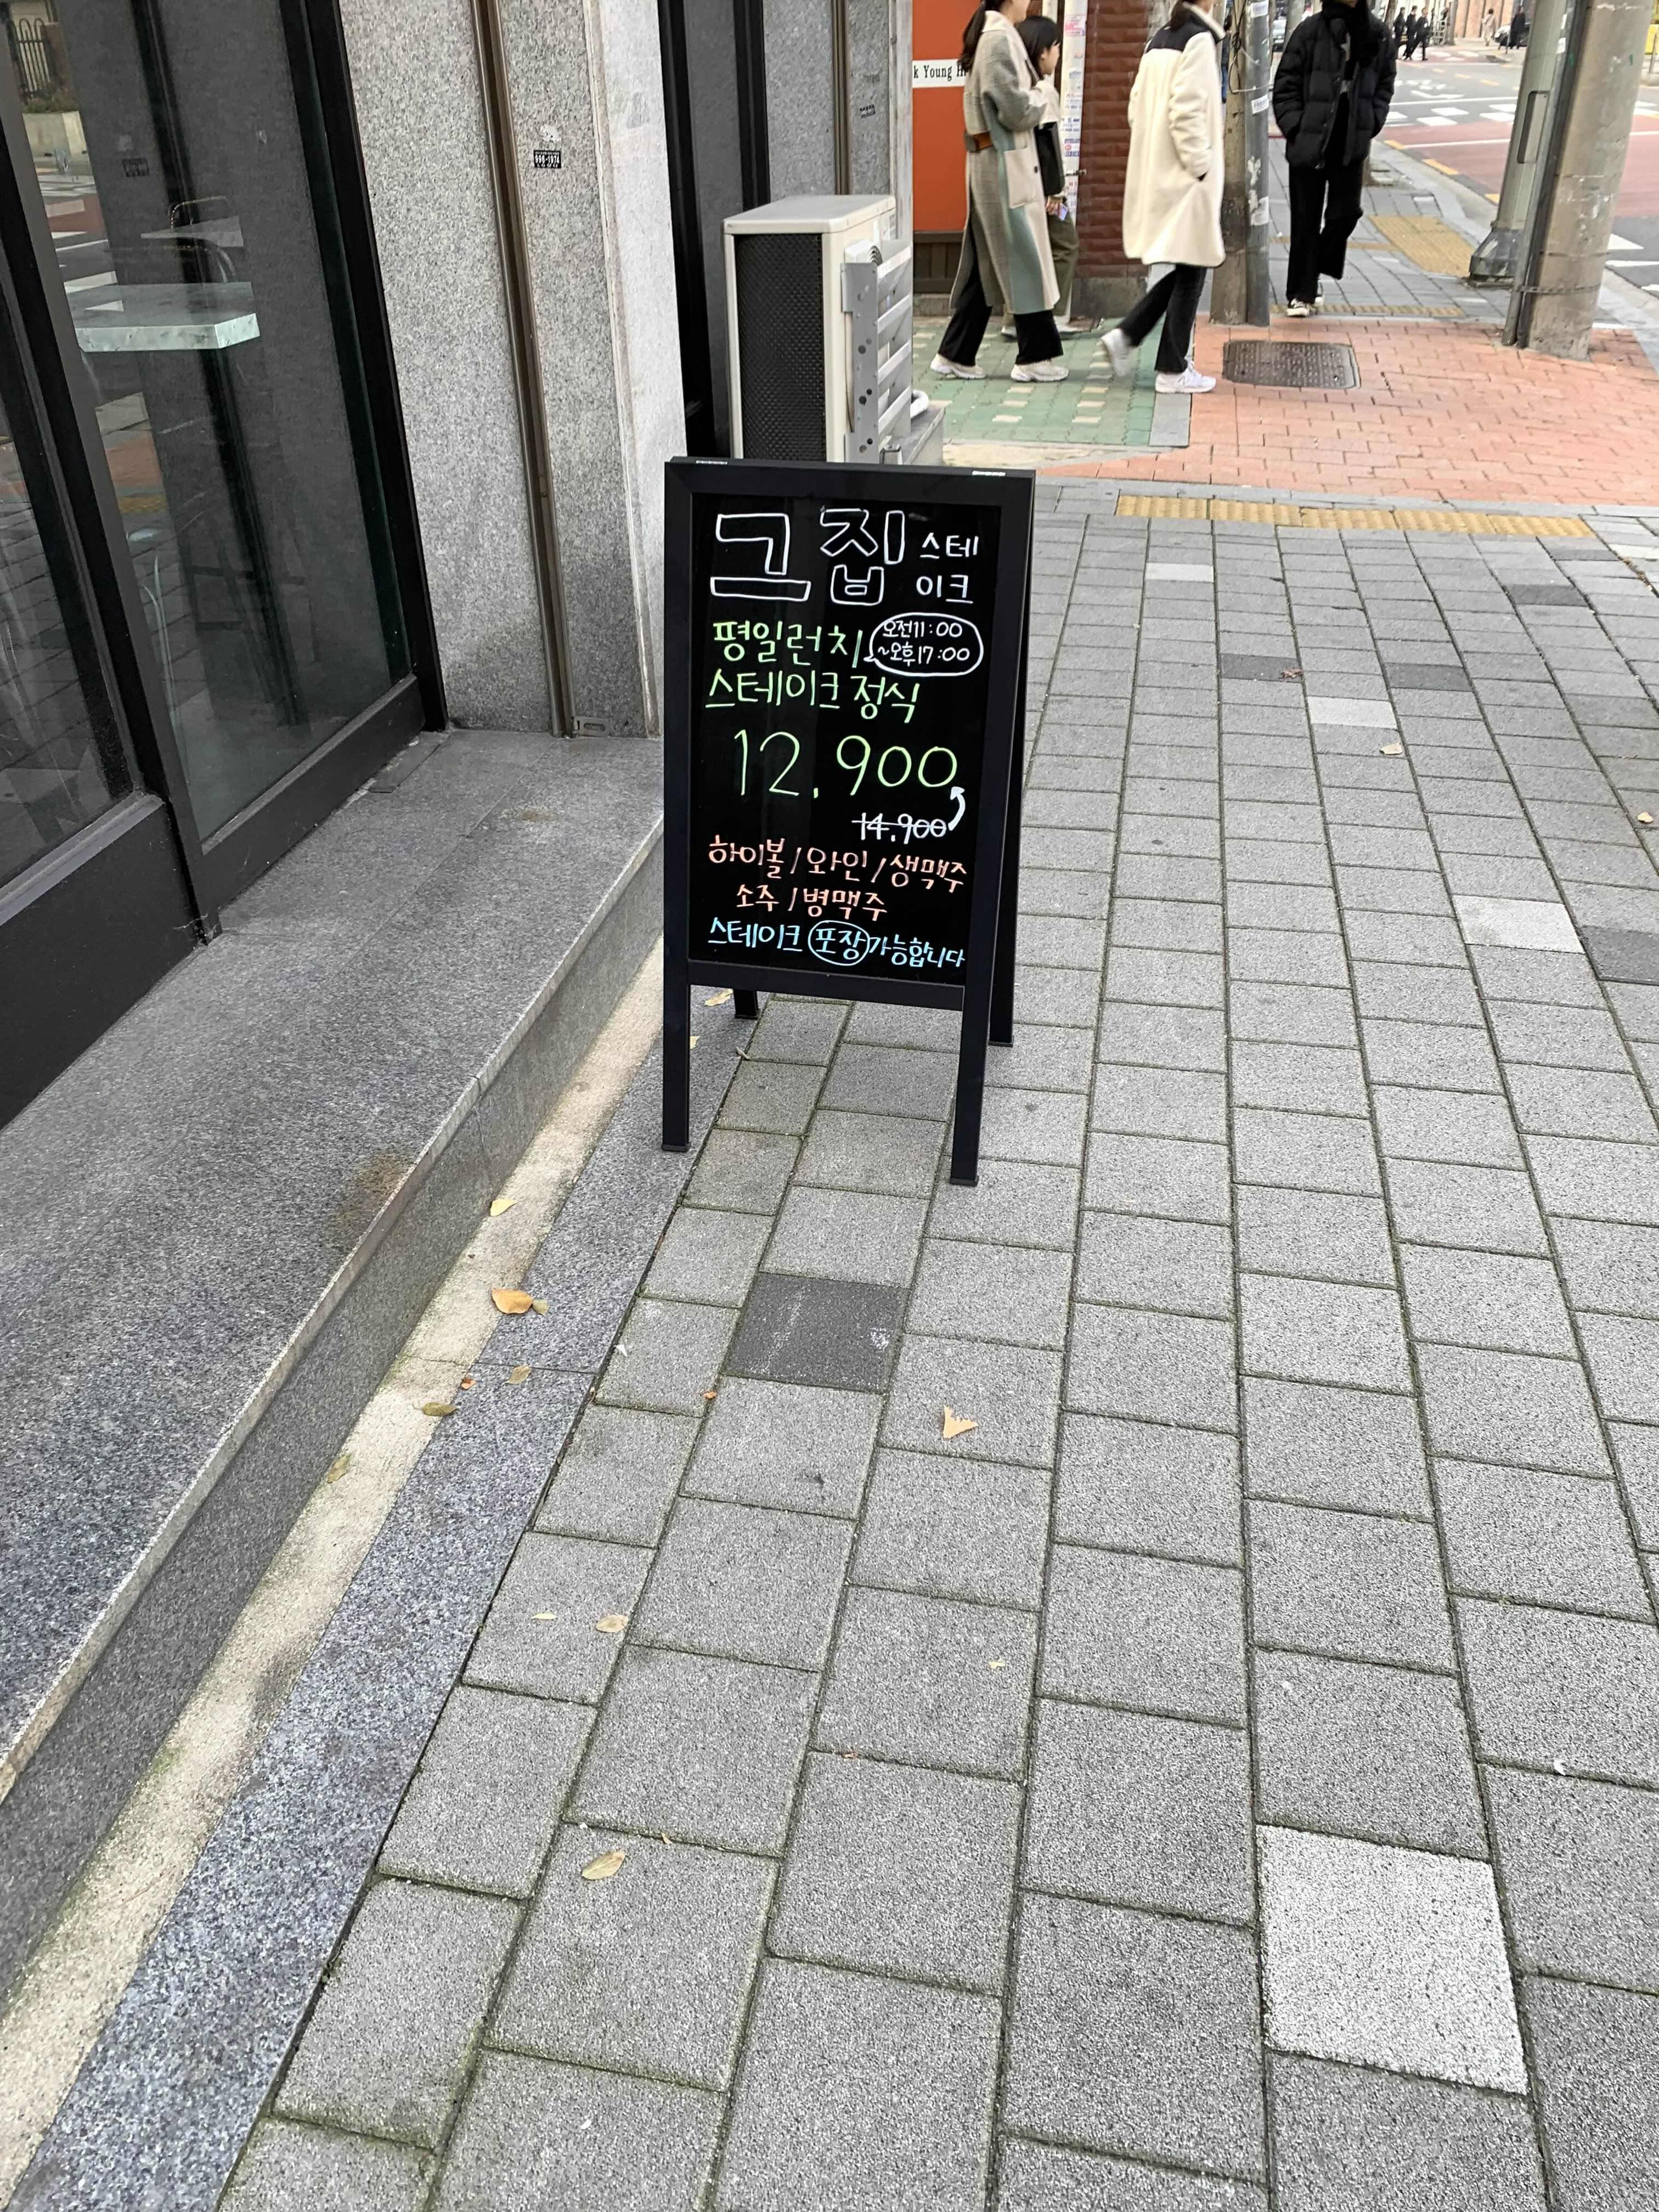 그집 스테
이크
평일런치 오전11:00
~오후17:00
스테이크 정식
12.900
14.900
하이볼/와인/생맥주
소주/병맥주
스테이크 포장가능합니다
k Young H